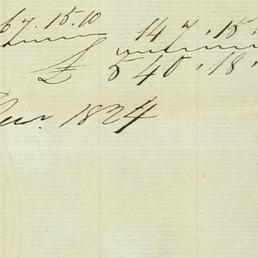 67.15.10 147.15.
£ 540.18.
1824